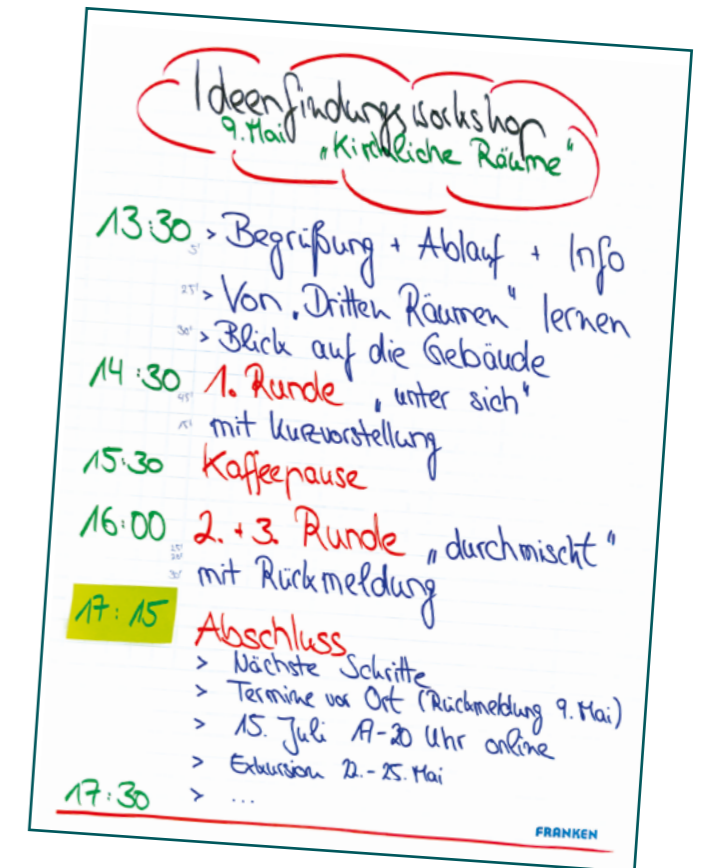 Ideenfindungsworkshop
9. Mai „Kirchliche Räume"
13:30 > Begrüßung + Ablauf + Info
5'
25' > Von „Dritten Räumen" lernen
30' > Blick auf die Gebäude
14:30 1. Runde „unter sich"
45'
15' mit Kurzvorstellung
15:30 Kaffeepause
16:00 2. + 3. Runde „durchmischt"
mit Rückmeldung
17:15 Abschluss
> Nächste Schritte
> Termine vor Ort (Rückmeldung 9. Mai)
> 15. Juli 19-20 Uhr online
> Exkursion 22.-25. Mai
17:30 > ...
FRANKEN